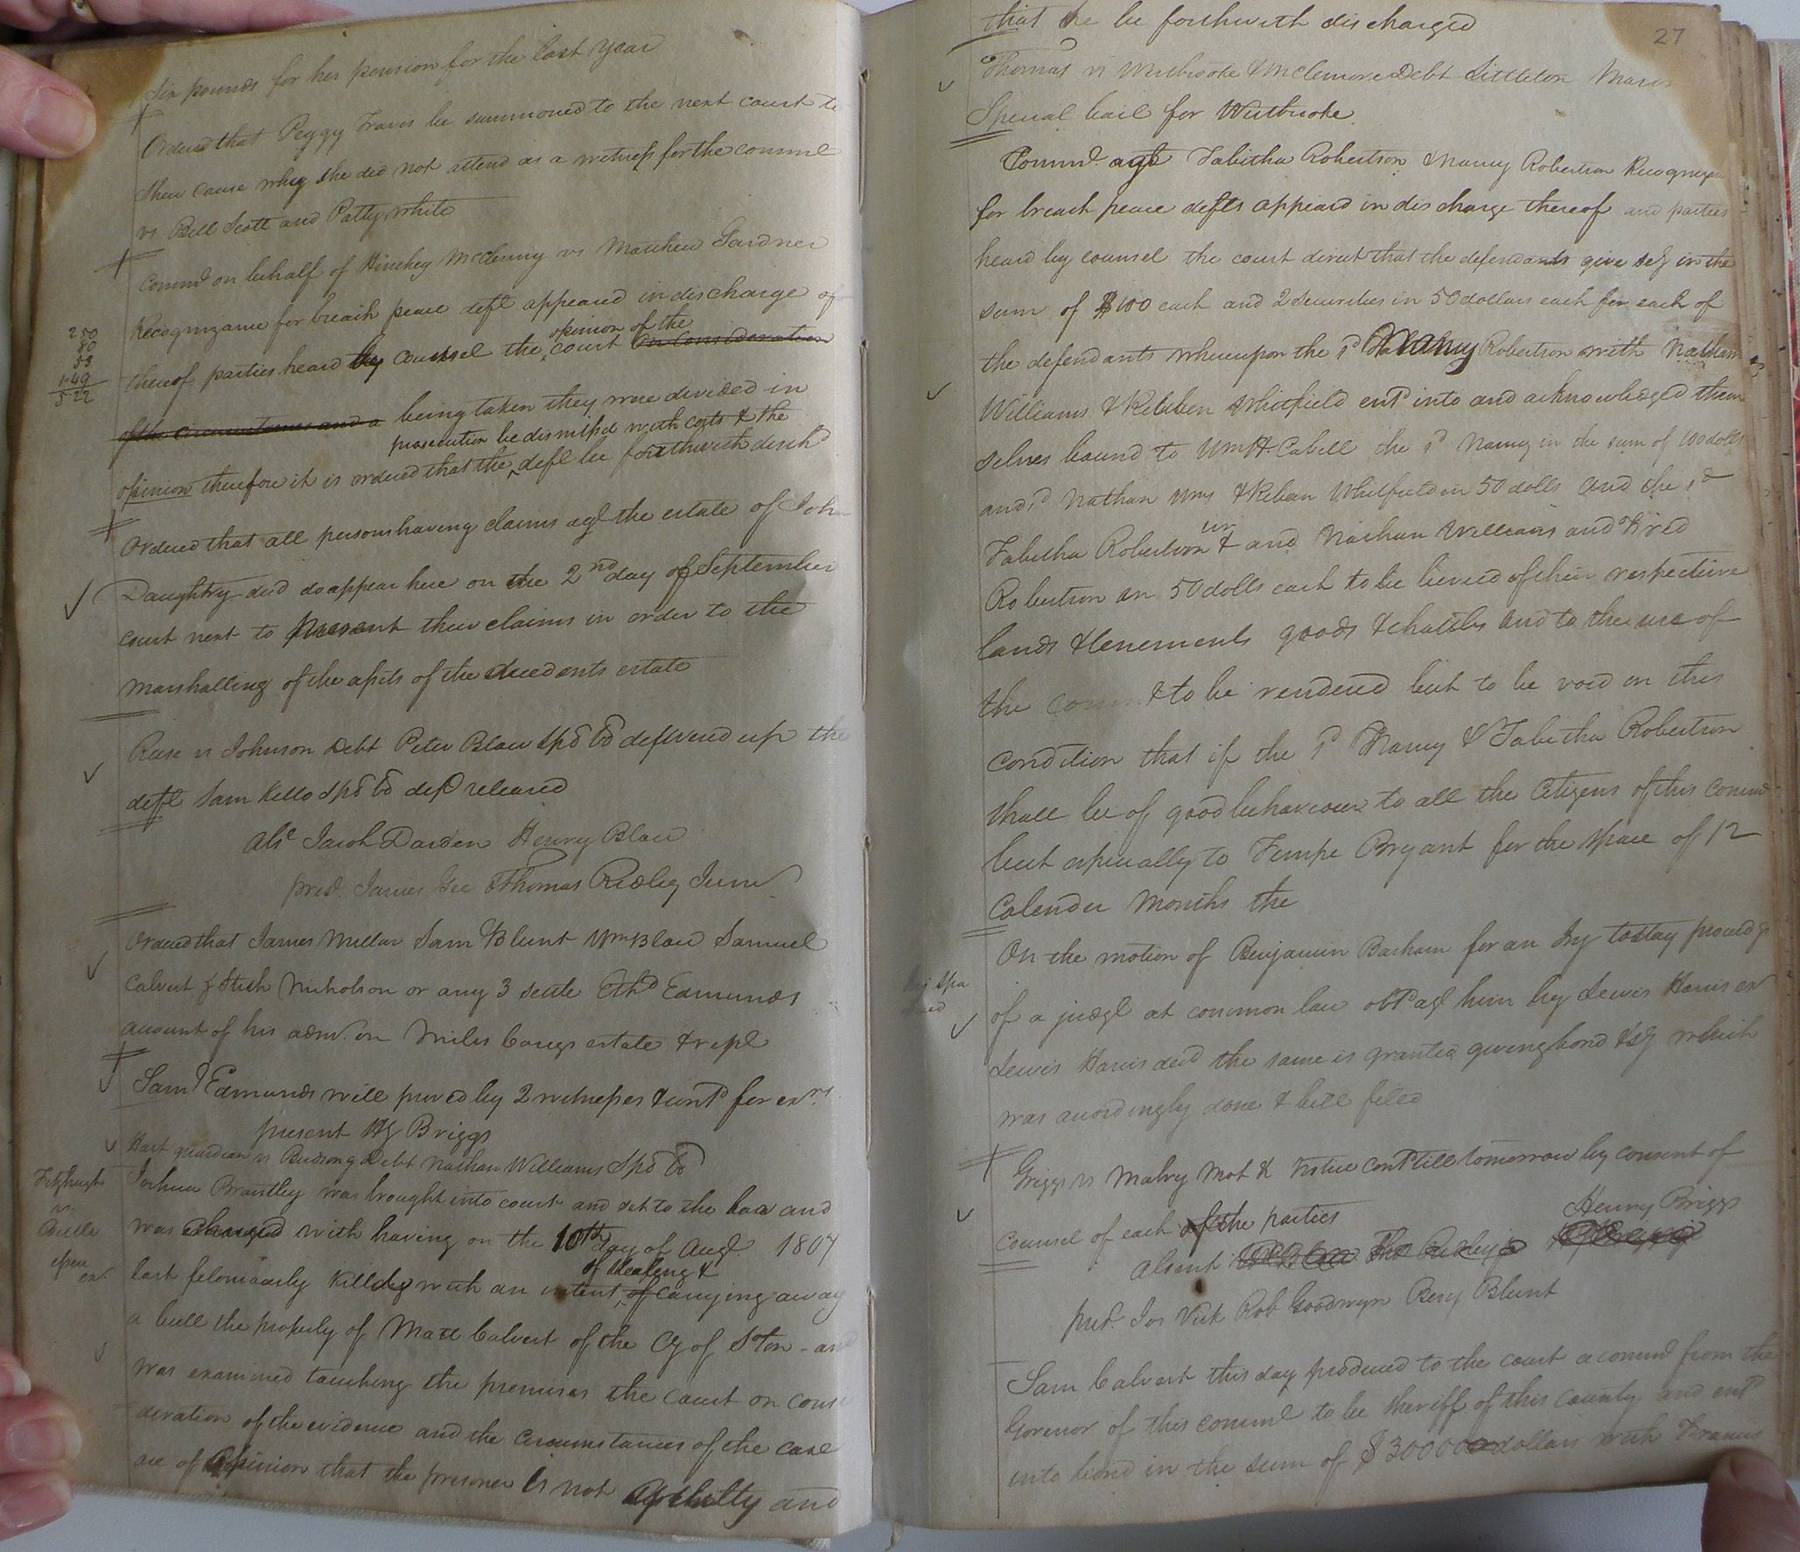 Six pounds for her pension for the last year
Ordered that Peggy Travis be summoned to the next court to
shew cause why she did not attend as a witness for the commw
vs Bill Scott and Patty White
Commd on behalf of Hinchey McClenny vs Matthew Gardner
Recognizance for breach peace deft appeared in discharge of
thereof parties heard by counsel the opinion of the court on consideration
of the circumstances and a being taken they were divided in
opinion therefore it is ordered that the prosecution be dismissed with costs & the deft be forthwith disch
250
80
53
1.49
522
Ordered that all persons having claims agt the estate of John
Daughtry decd do appear here on the 2nd day of September
court next to present their claims in order to the
marshalling of the assets of the decedents estate
Rose vs Johnson Debt Peter Blow spd bd delivered up the
deft Sam Kello spd bd def released
Abst Jacob Darden Henry Blow
presd. James Gee & Thomas Ridley Junr
Ordered that James Millar Sam Blunt Wm Blow Samuel
Calvert & Hush Nicholson or any 3 settle Ethd Edmunds
account of his admr. on Miles Carys estate & repl
Saml Edmunds will proved by 2 witnesses & contd for exrs
present Hy Briggs
Hart guardian vs Birdsong Debt Nathan Williams Spd bd
Joshua Brantley was brought into court and set to the bar and
was charged with having on the 10th day of Augt. 1807
last feloniously killed with an intent of stealing & of carrying away
a bull the property of Matt Calvert of the Cy of Ston - and
was examined touching the premises the court on consi
deration of the evidence and the circumstances of the case
are of opinion that the prisoner is not guilty and
27
that he be forthwith discharged
Thomas vs Westbrooke & McLemore Debt Littleton Mason
Special bail for Westbrooke
Commd. agt Tabitha Robertson & Nancy Robertson Recogniza
for breach peace defts appeard in discharge thereof and parties
heard by counsel the court direct that the defendants give secy in the
sum of $100 each and 2 securities in 50 dollars each for each of
the defendants whereupon the sd Nancy Robertson with Nathan
Williams & Reuben Whitfield entd into and acknowledged them
selves bound to Wm H. Cabell the sd Nancy in the sum of 100 dolls
and sd Nathan Wms & Reuben Whitfield in 50 dolls and the sd
Tabitha Robertson in & and Nathan Williams and Fred
Robertson in 50 dolls each to be levied of their respective
lands & tenements goods & chattles and to the use of
the comm & to be rendered but to be void on this
condition that if the sd Nancy & Tabitha Robertson
shall be of good behaviour to all the Citizens of this commd
but especially to Tempe Bryant for the space of 12
Calender Months the
On the motion of Benjamin Barham for an Inj to stay proceedgs
of a judgt at common law obtd agt him by Lewis Harris exr
Lewis Harris decd the same is granted giving bond & secy which
was accordingly done & bill filed
Griggs vs Malry Mot & Notice contd till tomorrow by consent of
counsel of each of the parties
Absent Henry Briggs
prest. Jos Vick Rob Goodwyn Benj Blunt
Sam Calvert this day produced to the court a commd from the
Govenor of this comml to be sheriff of this county and entd
into bond in the sum of $30000 dollars with Francis